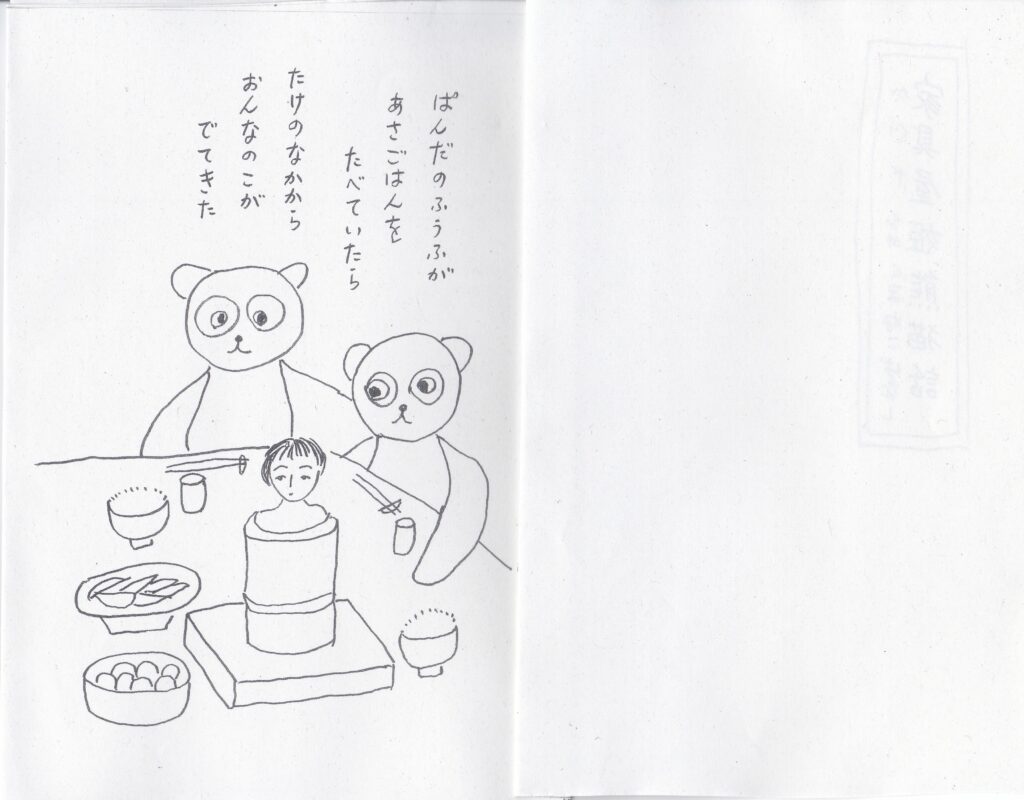 ぱんだのふうふが
あさごはんを
たべていたら
たけのなかから
おんなのこが
でてきた
家具屋姫熊猫話